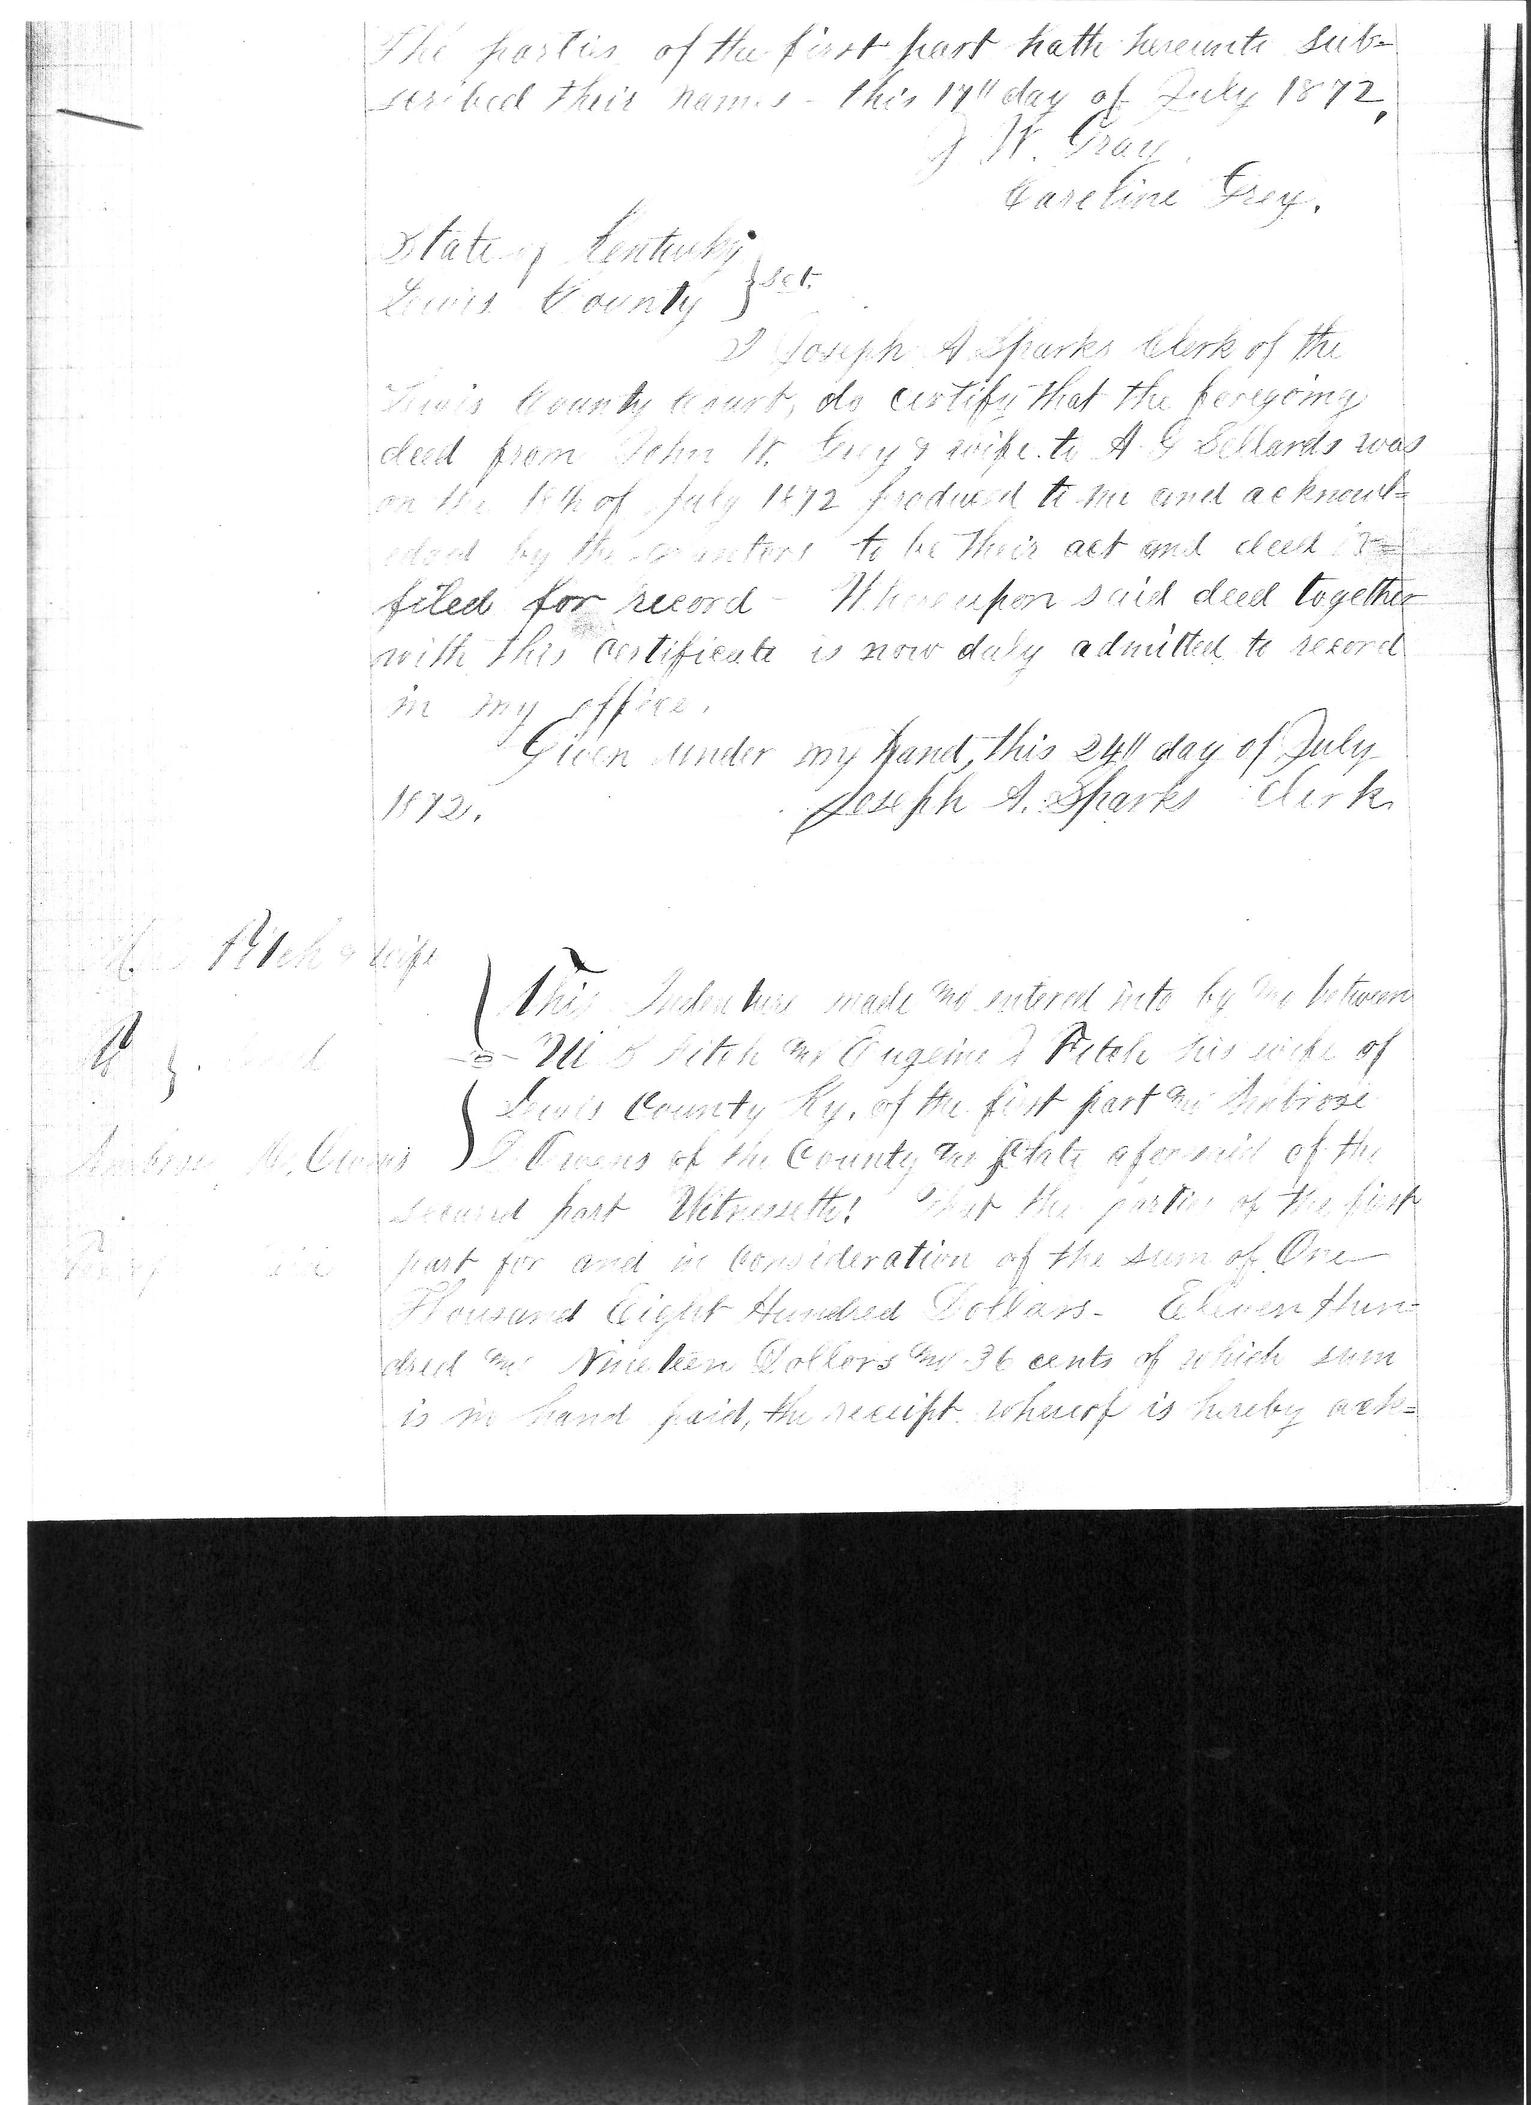 The parties of the first part hath hereunto sub=
scribed their names - this 17" day of July 1872,
J W. Gray.
Caroline Grey.
State of Kentucky
Lewis County } Sct.
I Joseph A Sparks Clerk of the
Lewis County Court, do certify that the foregoing
deed from John W. Grey & wife to A G Sellards was
on the 18th of July 1872 produced to me and acknowl=
edged by the grantors to be their act and deed &
filed for record - Whereupon said deed together
with this certificate is now duly admitted to record
in my office.
Given under my hand, this 24" day of July
1872. Joseph A. Sparks Clerk
Fitch & wife
Ambrose Owens
This Indenture made and entered into by and between
M S Fitch and Eugenie Fitch his wife of
Lewis County Ky. of the first part and Ambrose
Owens of the County and State aforesaid of the
second part Witnesseth! That the parties of the first
part for and in consideration of the sum of One
Thousand Eight Hundred Dollars - Eleven Hun=
dred and Nineteen Dollars and 36 cents of which sum
is in hand paid, the receipt whereof is hereby ack=